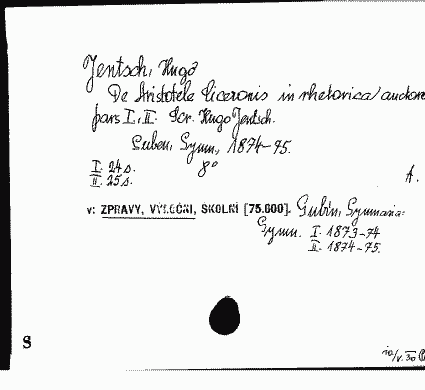 Jentsch, Hugo
De Aristotele Ciceronis in rhetorica auctore
pars I. II. Scr. Hugo Jentsch.
Guben, Gymn., 1874-75.
I. 24 s. 8°
II. 25 s. A.
v: ZPRÁVY, VÝROČNÍ, ŠKOLNÍ [75.600]. Gubin, Gymnasia:
Gymn. I. 1873-74
II. 1874-75.
S